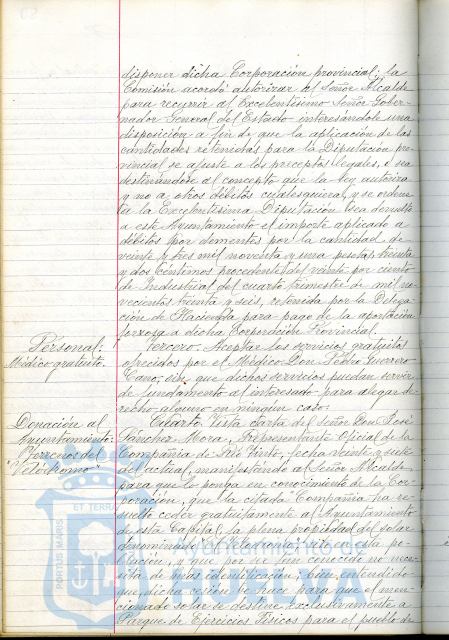 disponer dicha Corporación provincial; la
Comisión acordó autorizar al Señor Alcalde
para recurrir al Excelentísimo Señor Gober-
nador General del Estado interesándole una
disposición a fin de que la aplicación de las
cantidades retenidas para la Diputación pro-
vincial se ajuste a los preceptos legales, o sea
destinándose al concepto que la ley autoriza
y no a otros débitos cualesquiera, y se ordene
a la Excelentísima Diputación sea devuelto
a este Ayuntamiento el importe aplicado a
débitos por dementes por la cantidad de
veinte y tres mil noventa y una pesetas treinta
y dos céntimos procedente del veinte por ciento
de Industrial del cuarto trimestre de mil no-
vecientos treinta y seis, retenida por la Delega-
ción de Hacienda para pago de la aportación
forzosa a dicha Corporación Provincial.
Personal.
Médico gratuito.
Tercero. Aceptar los servicios gratuitos
ofrecidos por el Médico Don Pedro Guerrero
Cano, sin que dichos servicios puedan servir
de fundamento al interesado para alegar de-
recho alguno en ningún caso.
Donación al
Ayuntamiento
Terrenos del
"Velódromo"
Cuarto. Vista carta del Señor Don José
Sánchez Mora, Representante Oficial de la
Compañía de Río Tinto, fecha veinte y siete
del actual, manifestando al Señor Alcalde
para que lo ponga en conocimiento de la Cor-
poración, que la citada Compañía ha re-
suelto ceder gratuitamente al Ayuntamiento
de esta Capital, la plena propiedad del solar
denominado "Velódromo", sito en esta po-
blación, y que por ser tan conocido no nece-
sita de más identificación; bien entendido
que dicha cesión se hace para que el men-
cionado solar se destine exclusivamente a
Parque de Ejercicios Físicos para el pueblo de
PORTUS MARIS ET TERRAE
Ayuntamiento de
HUELVA